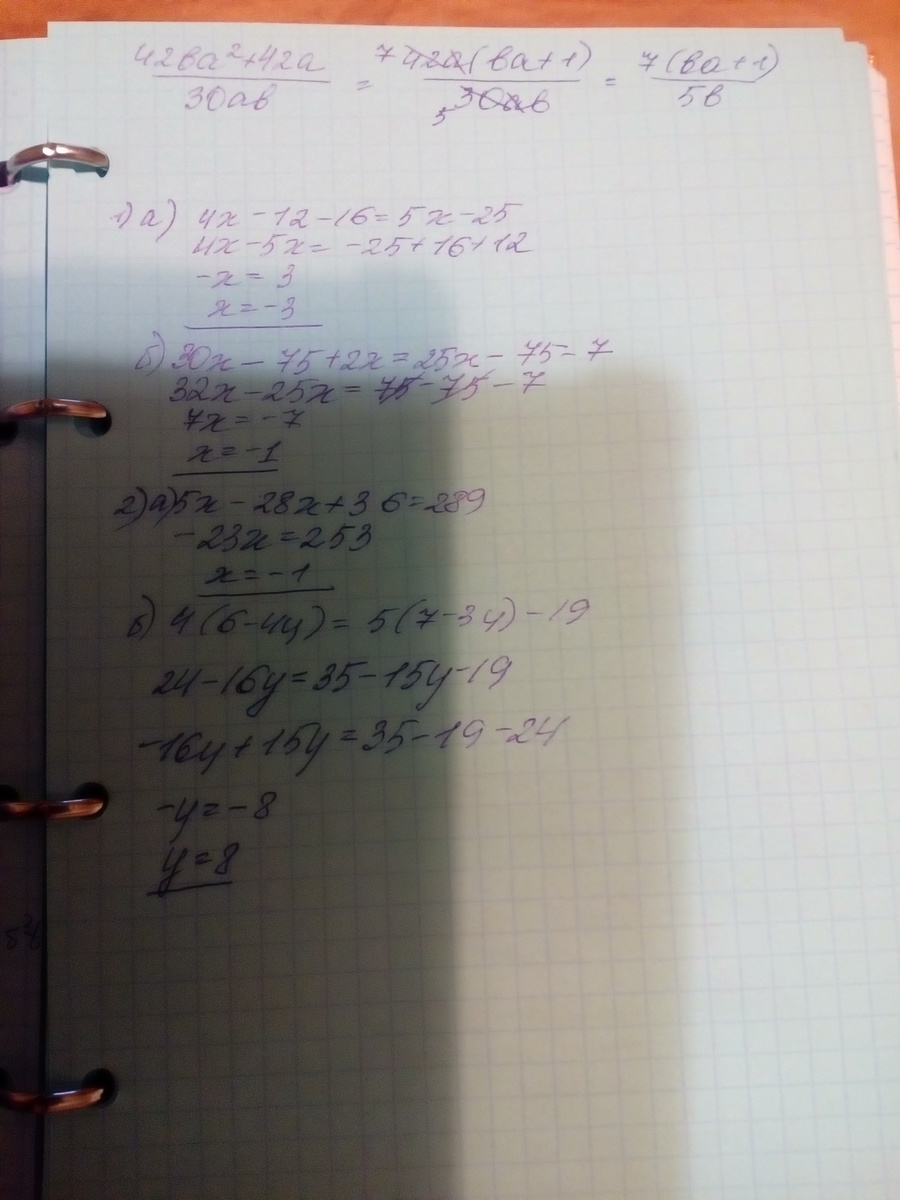 42ba²+42a / 30ab = 7 42a(ba+1) / 5 30ab = 7(ba+1) / 5b
1) а) 4x-12-16=5x-25
4x-5x= -25+16+12
-x = 3
x=-3
б) 30x-75+2x=25x-75-7
32x-25x=75-75-7
7x=-7
x=-1
2) а) 5x-28x+36=289
-23x=253
x=-1
б) 4(6-4y)=5(7-3y)-19
24-16y=35-15y-19
-16y+15y=35-19-24
-y=-8
y=8